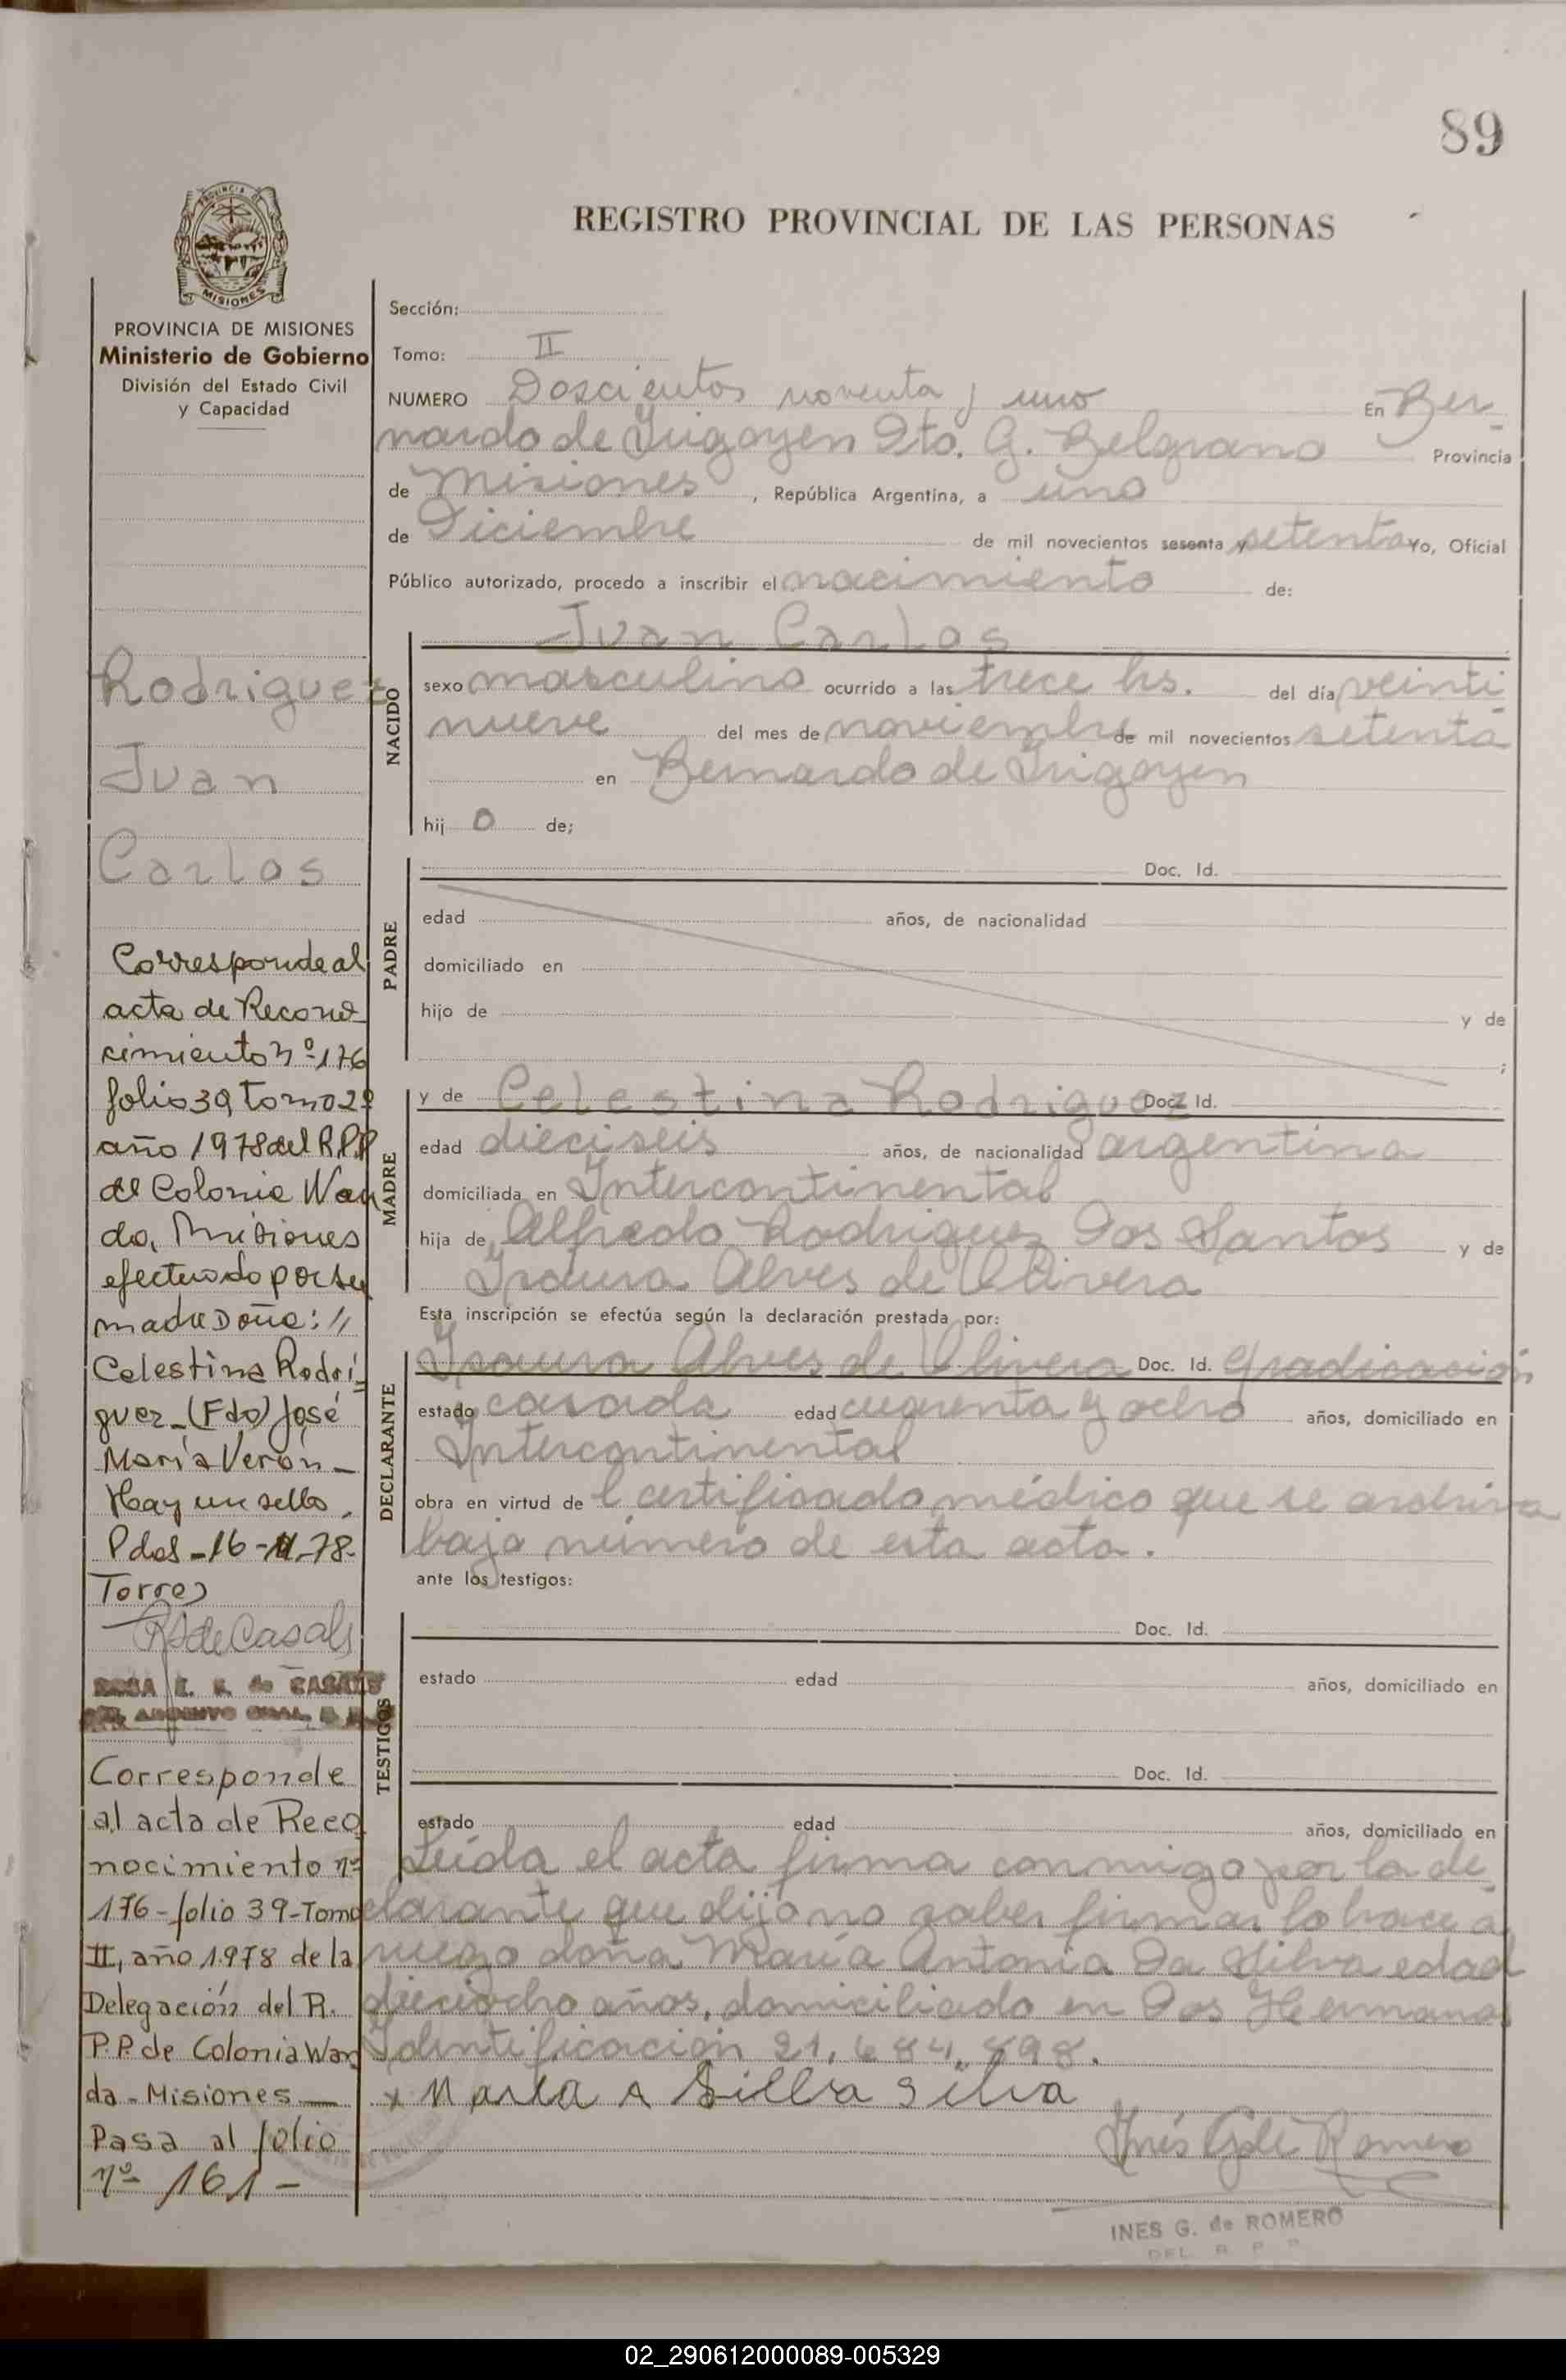 89
REGISTRO PROVINCIAL DE LAS PERSONAS
PROVINCIA DE MISIONES
Ministerio de Gobierno
División del Estado Civil
y Capacidad
Rodriguez
Juan
Carlos
Corresponde al
acta de Recono
cimiento nº 176
folio 39 tomo 2º
año 1978 del R.P.P
de Colonia Wan
da, Misiones
efectuado por su
madre Doña: //
Celestina Rodrí-
guez_(Fdo) José
María Verón_
Hay un sello.
Pdas-16-11-78-
Torres
RSdeCasals
ROSA E. S. de CASALS
ARCHIVO GRAL.
Corresponde
al acta de Reco
nocimiento nº
176-folio 39-Tomo
II, año 1978 de la
Delegación del R.
P.P. de Colonia Wan
da-Misiones—
Pasa al folio
nº 161-
Sección:
Tomo: II
NUMERO Doscientos noventa y uno En Ber-
nardo de Irigoyen Dto. G. Belgrano Provincia
de Misiones, República Argentina, a uno
de Diciembre de mil novecientos sesenta y setenta Yo, Oficial
Público autorizado, procedo a inscribir el nacimiento de:
NACIDO
Juan Carlos
sexo masculino ocurrido a las trece hs. del día veinti
nueve del mes de noviembre de mil novecientos setenta
en Bernardo de Irigoyen
hijo de;
PADRE
Doc. Id.
edad años, de nacionalidad
domiciliado en
hijo de y de
;
MADRE
y de Celestina Rodriguez Doc. Id.
edad dieciseis años, de nacionalidad argentina
domiciliada en Intercontinental
hija de Alfredo Rodriguez Dos Santos y de
Isaura Alves de Olivera
Esta inscripción se efectúa según la declaración prestada por:
DECLARANTE
Isaura Alves de Olivera Doc. Id. Gradicación
estado casada edad cuarenta y ocho años, domiciliado en
Intercontinental
obra en virtud de l certificado médico que se archiva
bajo número de esta acta.
ante los testigos:
TESTIGOS
Doc. Id.
estado edad años, domiciliado en
Doc. Id.
estado edad años, domiciliado en
Leída el acta firma conmigo por la de
clarante que dijo no saber firmar lo hace a
ruego doña María Antonia Da Silva edad
dieciocho años, domiciliado en Dos Hermanas
Identificación 21.684.898.
x Maria A Sillva Silva
Inés G. de Romero
INES G. de ROMERO
DEL. R. P. P.
02_290612000089-005329